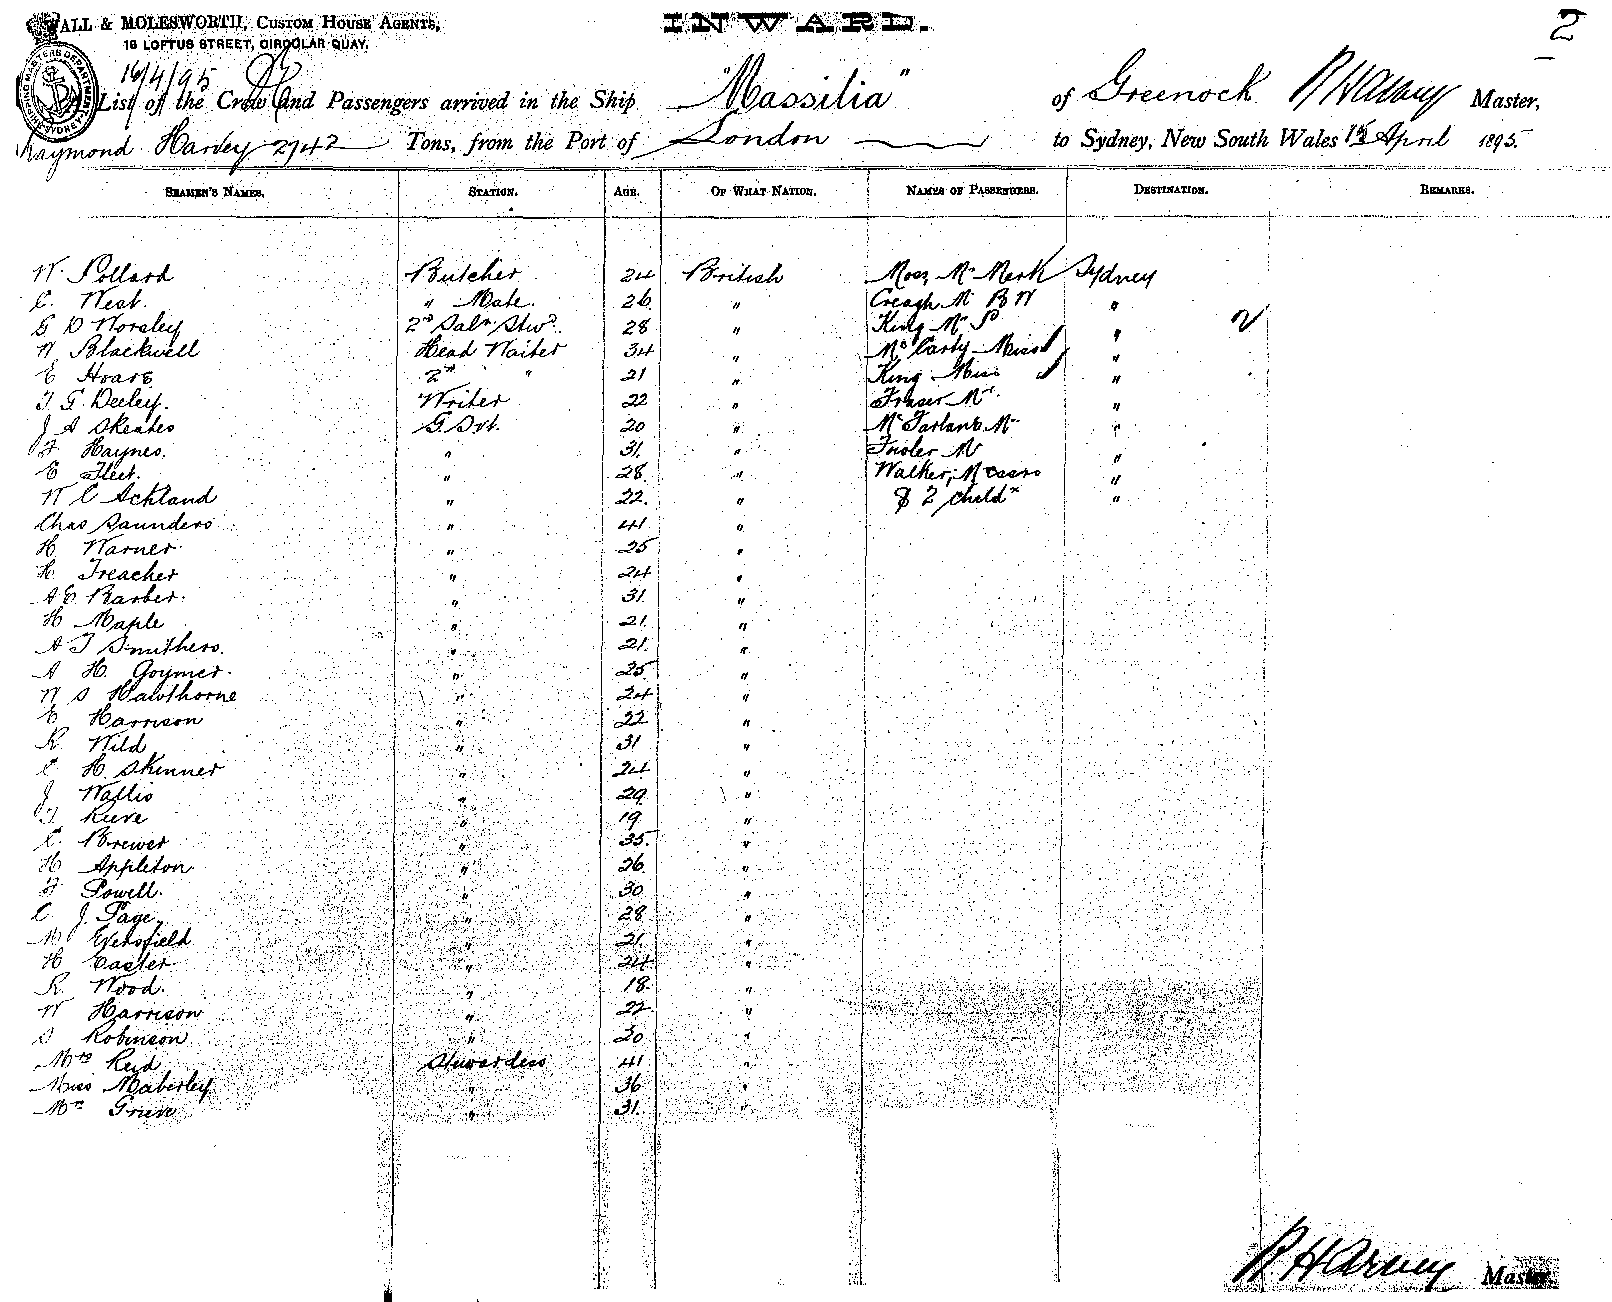 WALL & MOLESWORTH, CUSTOM HOUSE AGENTS,
16 LOFTUS STREET, CIRCULAR QUAY.
INWARD.
2
16/4/95
A List of the Crew and Passengers arrived in the Ship "Massilia" of Greenock R Harvey Master,
Raymond Harvey 2942 Tons, from the Port of London to Sydney, New South Wales 15 April 1895.
SEAMEN'S NAMES. STATION. AGE. OF WHAT NATION. NAMES OF PASSENGERS. DESTINATION. REMARKS.
W. Pollard Butcher 24 British Moss, Mr Mark Sydney
C. West. " Mate. 26 " Creagh Mr B W "
G D Worsley 2nd Saln Stwd. 28 " King Mr P "
W Blackwell Head Waiter 34 " McCarty Miss "
E Hoare 2nd " 21 " King Miss "
T G Deeley. Writer 22 " Fraser Mr. "
J A Skeates G. Svt. 20 " McFarland Mr "
F Haynes. " 31. " Mr "
E Fleet. " 28. " Walker, Messrs "
W C Ackland " 22. " & 2 childn "
Chas Saunders " 41. "
H. Warner " 25 "
H. Treacher " 24 "
A E Barber. " 31. "
H Maple " 21. "
A T Smithers. " 21. "
A H. Goymer. " 25 "
W S Hawthorne " 24 "
E Harrison " 22 "
R. Wild " 31 "
C. H. Skinner " 24 "
J Wallis " 29 "
T Reeve " 19 "
C. Brewer " 35. "
H Appleton " 26. "
F Powell. " 30 "
C J. Page. " 28. "
M Eversfield " 21. "
H Easter " 24 "
R. Wood. " 18. "
W Harrison " 22 "
S Robinson " 20 "
Mrs Reid Stewardess 41 "
Miss Maberley " 36 "
Mrs Grieve " 31. "
R Harvey Master.